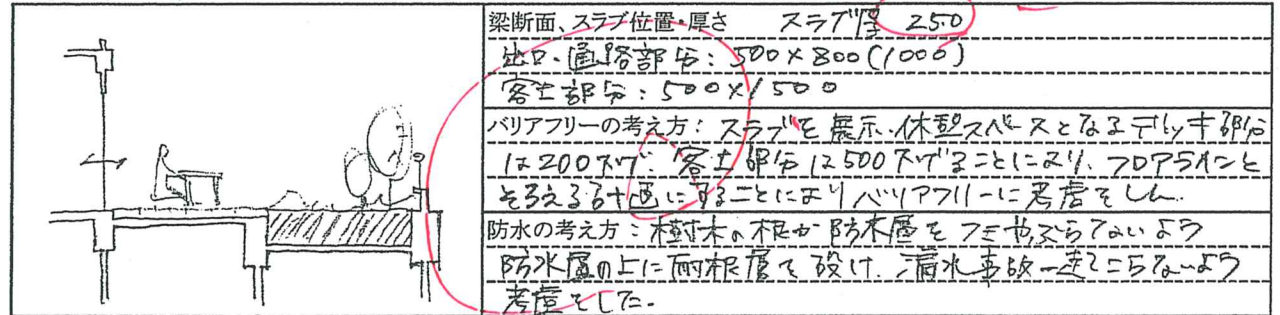 梁断面、スラブ位置・厚さ スラブ厚 250
出口・通路部分：500×800(1000)
客土部分：500×1500
バリアフリーの考え方：スラブを展示・休憩スペースとなるデッキ部分
は200下げ、客土部分は500下げることにより、フロアラインを
そろえる計画にすることによりバリアフリーに考慮をした。
防水の考え方：樹木の根が防水層をつきやぶらないよう
防水層の上に耐根層を設け、漏水事故を起こらないよう
考慮をした。